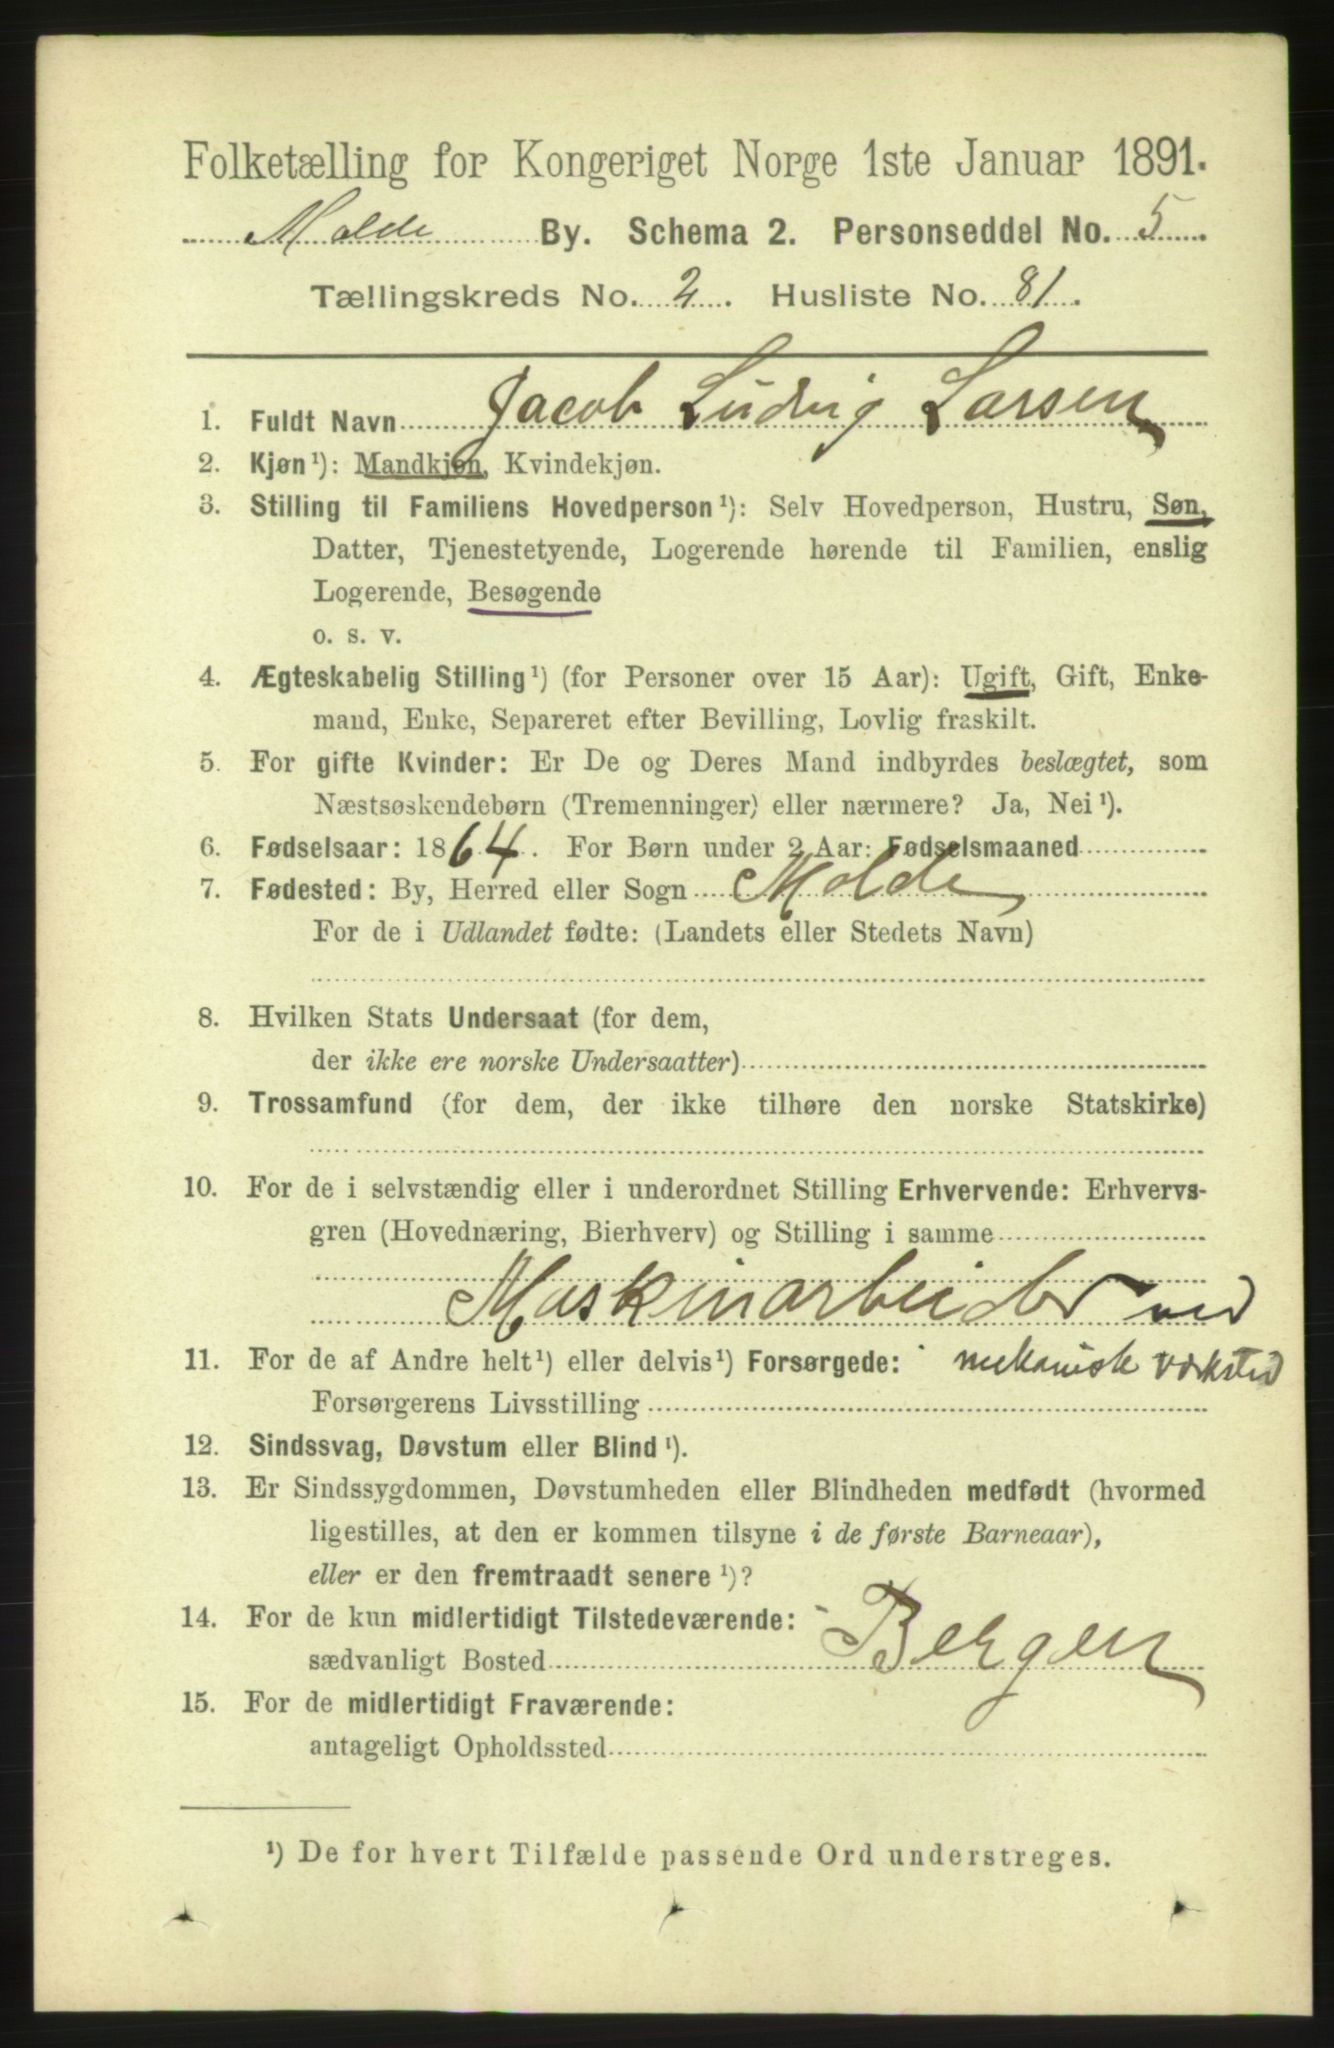 Folketælling for Kongeriget Norge 1ste Januar 1891.
Molde By. Schema 2. Personseddel No. 5
Tællingskreds No. 2. Husliste No. 81.
1. Fuldt Navn Jacob Ludvig Larsen
2. Kjøn¹): Mandkjøn, Kvindekjøn.
3. Stilling til Familiens Hovedperson¹): Selv Hovedperson, Hustru, Søn,
Datter, Tjenestetyende, Logerende hørende til Familien, enslig
Logerende, Besøgende
o. s. v.
4. Ægteskabelig Stilling¹) (for Personer over 15 Aar): Ugift, Gift, Enke-
mand, Enke, Separeret efter Bevilling, Lovlig fraskilt.
5. For gifte Kvinder: Er De og Deres Mand indbyrdes beslægtet, som
Næstsøskendebørn (Tremenninger) eller nærmere? Ja, Nei¹).
6. Fødselsaar: 1864. For Børn under 2 Aar: Fødselsmaaned
7. Fødested: By, Herred eller Sogn Molde
For de i Udlandet fødte: (Landets eller Stedets Navn)
8. Hvilken Stats Undersaat (for dem,
der ikke ere norske Undersaatter)
9. Trossamfund (for dem, der ikke tilhøre den norske Statskirke)
10. For de i selvstændig eller i underordnet Stilling Erhvervende: Erhvervs-
gren (Hovednæring, Bierhverv) og Stilling i samme
Maskinarbeider ved
11. For de af Andre helt¹) eller delvis¹) Forsørgede: mekanisk værksted
Forsørgerens Livsstilling
12. Sindssvag, Døvstum eller Blind¹).
13. Er Sindssygdommen, Døvstumheden eller Blindheden medfødt (hvormed
ligestilles, at den er kommen tilsyne i de første Barneaar),
eller er den fremtraadt senere¹)?
14. For de kun midlertidigt Tilstedeværende:
sædvanligt Bosted Bergen
15. For de midlertidigt Fraværende:
antageligt Opholdssted
¹) De for hvert Tilfælde passende Ord understreges.